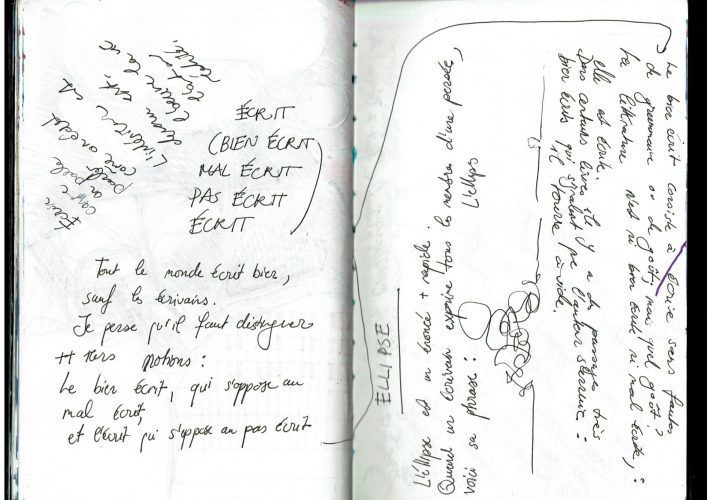 ÉCRIT
(BIEN ÉCRIT
MAL ÉCRIT
PAS ÉCRIT
ÉCRIT
Tout le monde écrit bien,
sauf les écrivains.
Je pense qu'il faut distinguer
notions :
Le bien écrit, qui s'oppose au
mal écrit,
et l'écrit qui s'oppose au pas écrit
Le bien écrit consiste à écrire sans fautes
de grammaire ou de goût, mais quel goût ?
La littérature n'est ni bien écrite ni mal écrite, :
elle est écrite.
Dans certains livres, il y a des passages très
bien écrits, qui signalent que l'auteur s'ennuie :
il tourne à vide.
ELLIPSE
L'ellipse est un énoncé + rapide.
Quand un écrivain exprime tous les membres d'une pensée,
voici sa phrase : L'ellips